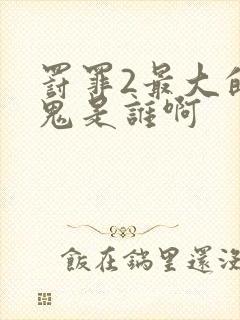 罸罪2最大的
鬼是誰啊
飯在鍋里還沒